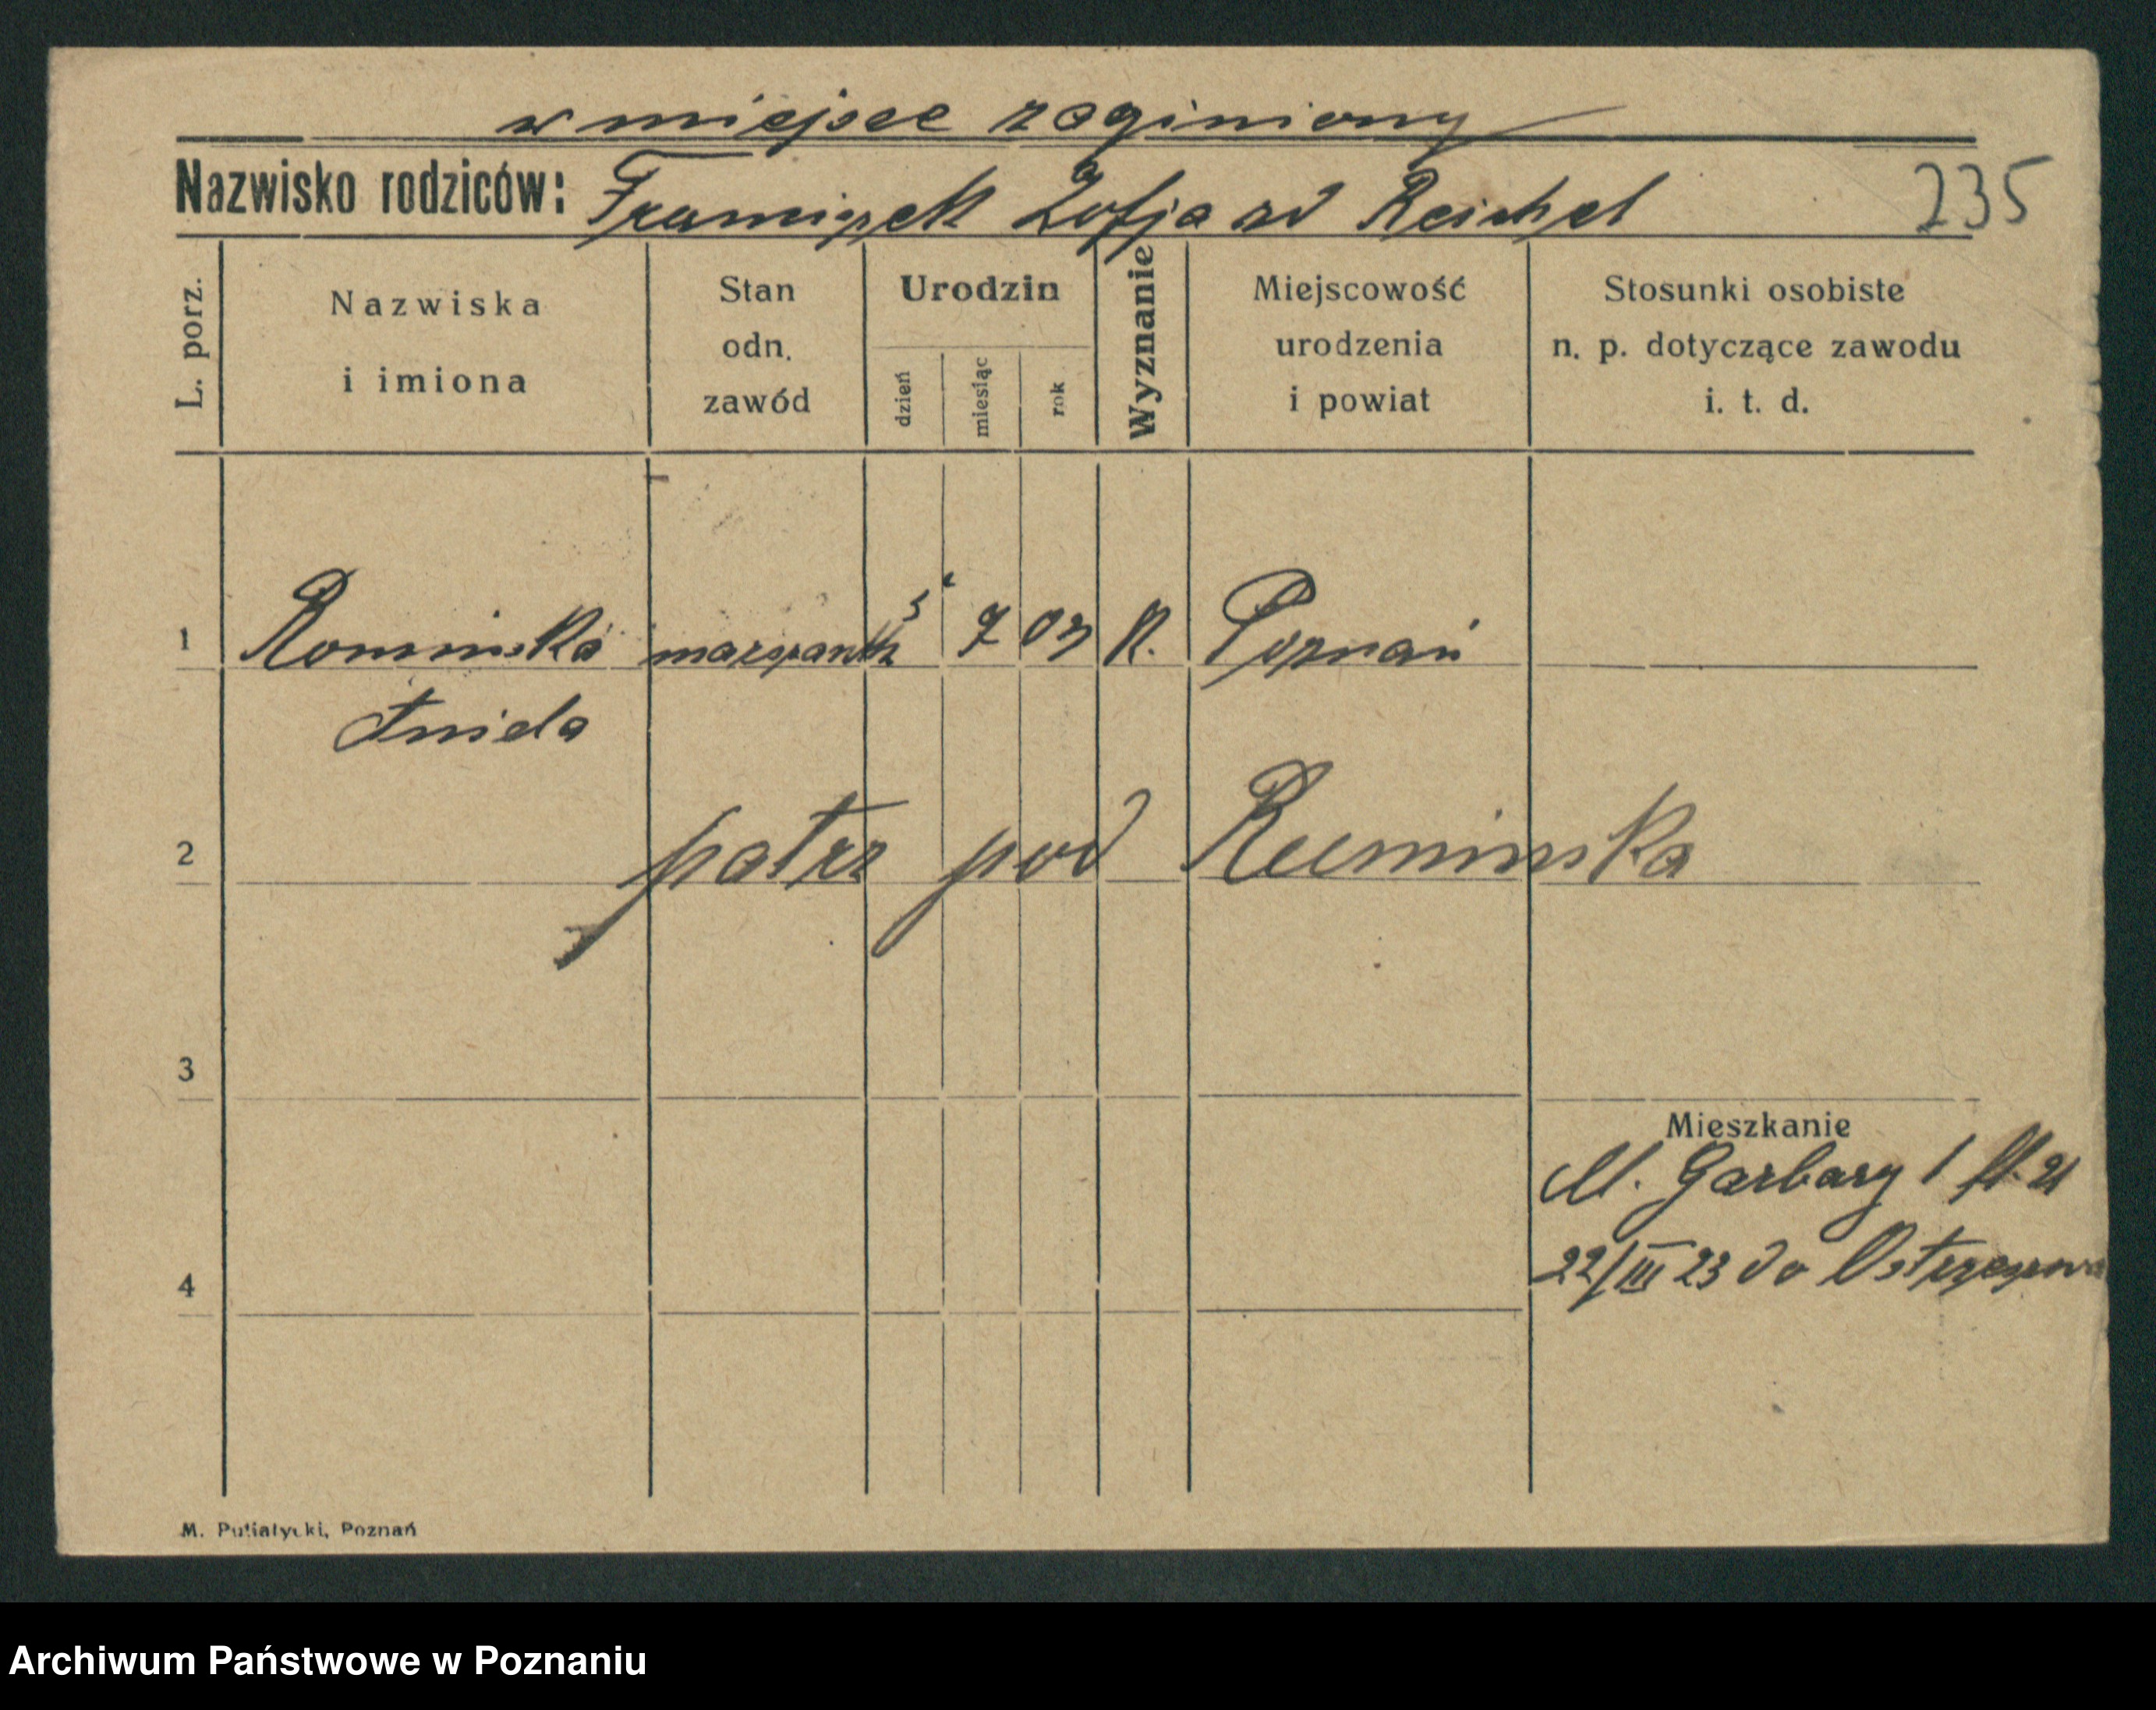 w miejsce zaginiony
Nazwisko rodziców: Franciszek Zofja zd Reichel 235
L. porz.
Nazwiska
i imiona
Stan
odn.
zawód
Urodzin
dzień
miesiąc
rok
Wyznanie
Miejscowość
urodzenia
i powiat
Stosunki osobiste
n. p. dotyczące zawodu
i. t. d.
1 Rominska 7 03 K. Poznań
Aniela
2 patrz pod Ruminska
3
Mieszkanie
M. Garbary 1
4 22/III 23 do Ostrzeszowa
M. Putiatycki, Poznań
Archiwum Państwowe w Poznaniu